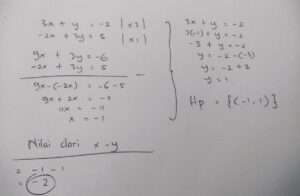 3x + y = -2 | x3 |
-2x + 3y = 5 | x1 |
9x + 3y = -6
-2x + 3y = 5
9x - (-2x) = -6 - 5
9x + 2x = -11
11x = -11
x = -1
3x + y = -2
3(-1) + y = -2
-3 + y = -2
y = -2 - (-3)
y = -2 + 3
y = 1
Hp = {(-1, 1)}
Nilai dari x - y
= -1 - 1
= -2